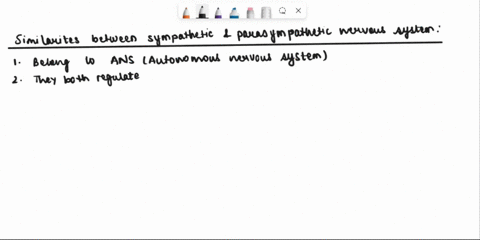 Similarites between sympathetic & parasympathetic nervous system:
1. Belong to ANS (Autonomous nervous system)
2. They both regulate